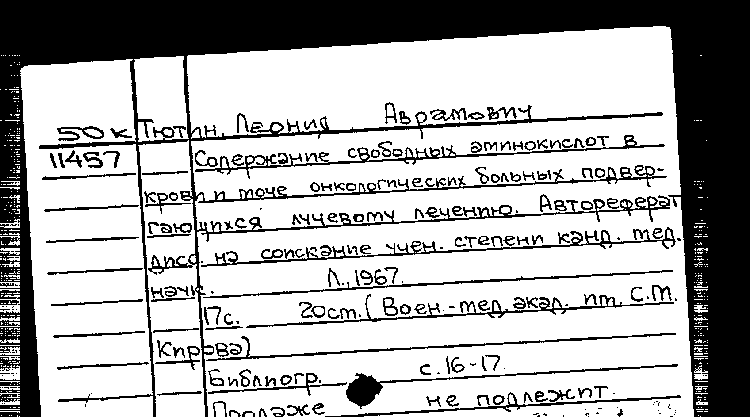 50к Тютин, Леонид Аврамович
11457 Содержание свободных аминокислот в
крови и моче онкологических больных, подвер-
гающихся лучевому лечению. Автореферат
дисс. на соискание учен. степени канд. мед.
наук. Л., 1967.
17с. 20см. (Воен.-мед. акад. им. С.М.
Кирова)
Библиогр. с. 16-17
Продаже не подлежит.